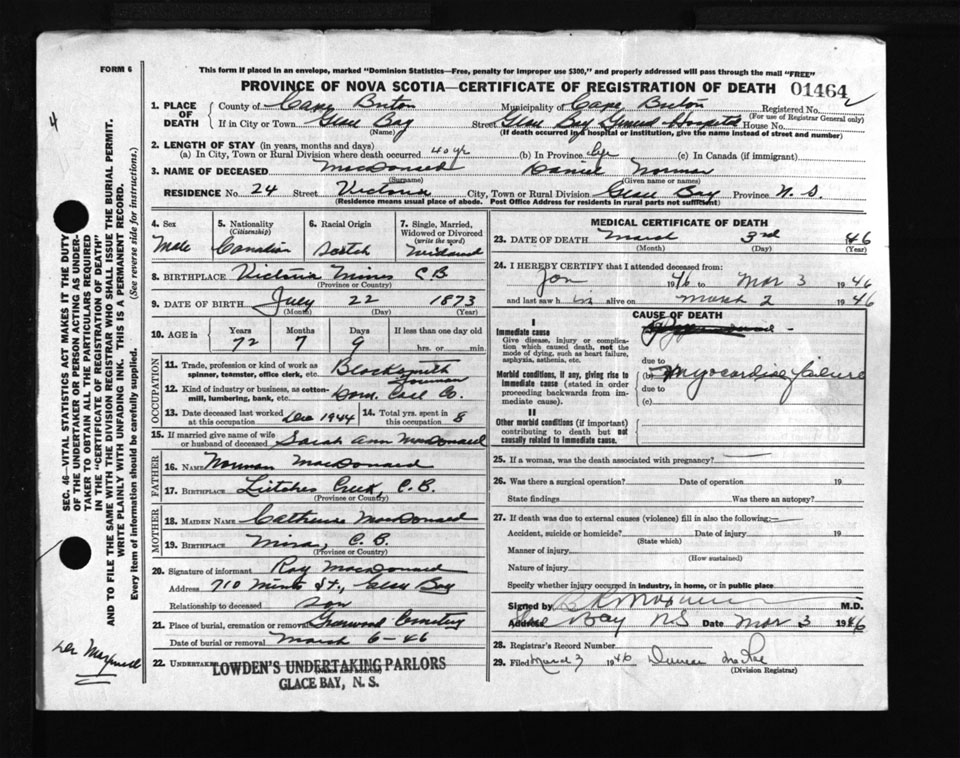 FORM 6
This form if placed in an envelope, marked "Dominion Statistics—Free, penalty for improper use $300," and properly addressed will pass through the mail "FREE"
PROVINCE OF NOVA SCOTIA—CERTIFICATE OF REGISTRATION OF DEATH 01464
1. PLACE OF DEATH County of Cape Breton Municipality of Cape Breton Registered No.
(For use of Registrar General only)
If in City or Town Glace Bay Street Glace Bay General Hospital House No.
(Name) (If death occurred in a hospital or institution, give the name instead of street and number)
2. LENGTH OF STAY (in years, months and days)
(a) In City, Town or Rural Division where death occurred 40 yr (b) In Province life (c) In Canada (if immigrant)
3. NAME OF DECEASED MacDonald Daniel Norman
(Surname) (Given name or names)
RESIDENCE No. 24 Street Victoria City, Town or Rural Division Glace Bay Province N. S.
(Residence means usual place of abode. Post Office Address for residents in rural parts not sufficient)
4. Sex Male
5. Nationality (Citizenship) Canadian
6. Racial Origin Scotch
7. Single, Married, Widowed or Divorced (write the word) Widowed
8. BIRTHPLACE Victoria Mines C B
(Province or Country)
9. DATE OF BIRTH July 22 1873
(Month) (Day) (Year)
10. AGE in Years 72 Months 7 Days 9 If less than one day old hrs. or min.
OCCUPATION
11. Trade, profession or kind of work as spinner, teamster, office clerk, etc. Blacksmith Foreman
12. Kind of industry or business, as cotton-mill, lumbering, bank, etc. Dom. Coal Co.
13. Date deceased last worked at this occupation Dec 1944 14. Total yrs. spent in this occupation 8
15. If married give name of wife or husband of deceased Sarah Ann MacDonald
FATHER
16. NAME Norman MacDonald
17. BIRTHPLACE Litches Creek, C.B.
(Province or Country)
MOTHER
18. MAIDEN NAME Catherine MacDonald
19. BIRTHPLACE Mira, C. B.
(Province or Country)
20. Signature of informant Roy MacDonald
Address 710 Minto St., Glace Bay
Relationship to deceased son
21. Place of burial, cremation or removal Greenwood Cemetery
Date of burial or removal March 6-46
22. UNDERTAKER LOWDEN'S UNDERTAKING PARLORS
GLACE BAY, N. S.
MEDICAL CERTIFICATE OF DEATH
23. DATE OF DEATH March 3rd 46
(Month) (Day) (Year)
24. I HEREBY CERTIFY that I attended deceased from:
Jan 1946 to Mar 3 1946
and last saw him alive on March 2 1946
CAUSE OF DEATH
I
Immediate cause
Give disease, injury or complication which caused death, not the mode of dying, such as heart failure, asphyxia, asthenia, etc.
due to
Morbid conditions, if any, giving rise to immediate cause (stated in order proceeding backwards from immediate cause).
(b) Myocardial failure
due to
(c)
II
Other morbid conditions (if important) contributing to death but not causally related to immediate cause.
25. If a woman, was the death associated with pregnancy?
26. Was there a surgical operation? Date of operation 19
State findings Was there an autopsy?
27. If death was due to external causes (violence) fill in also the following:—
Accident, suicide or homicide? Date of injury 19
(State which)
Manner of injury
(How sustained)
Nature of injury
Specify whether injury occurred in industry, in home, or in public place
Signed by M.D.
Address Glace Bay N S Date Mar 3 1946
28. Registrar's Record Number
29. Filed March 7 1946 Duncan McRae
(Division Registrar)
SEC. 46—VITAL STATISTICS ACT MAKES IT THE DUTY
OF THE UNDERTAKER OR PERSON ACTING AS UNDER-
TAKER TO OBTAIN ALL THE PARTICULARS REQUIRED
IN THE "CERTIFICATE OF REGISTRATION OF DEATH"
AND TO FILE THE SAME WITH THE DIVISION REGISTRAR WHO SHALL ISSUE THE BURIAL PERMIT.
WRITE PLAINLY WITH UNFADING INK. THIS IS A PERMANENT RECORD.
Every item of information should be carefully supplied. (See reverse side for instructions.)
4